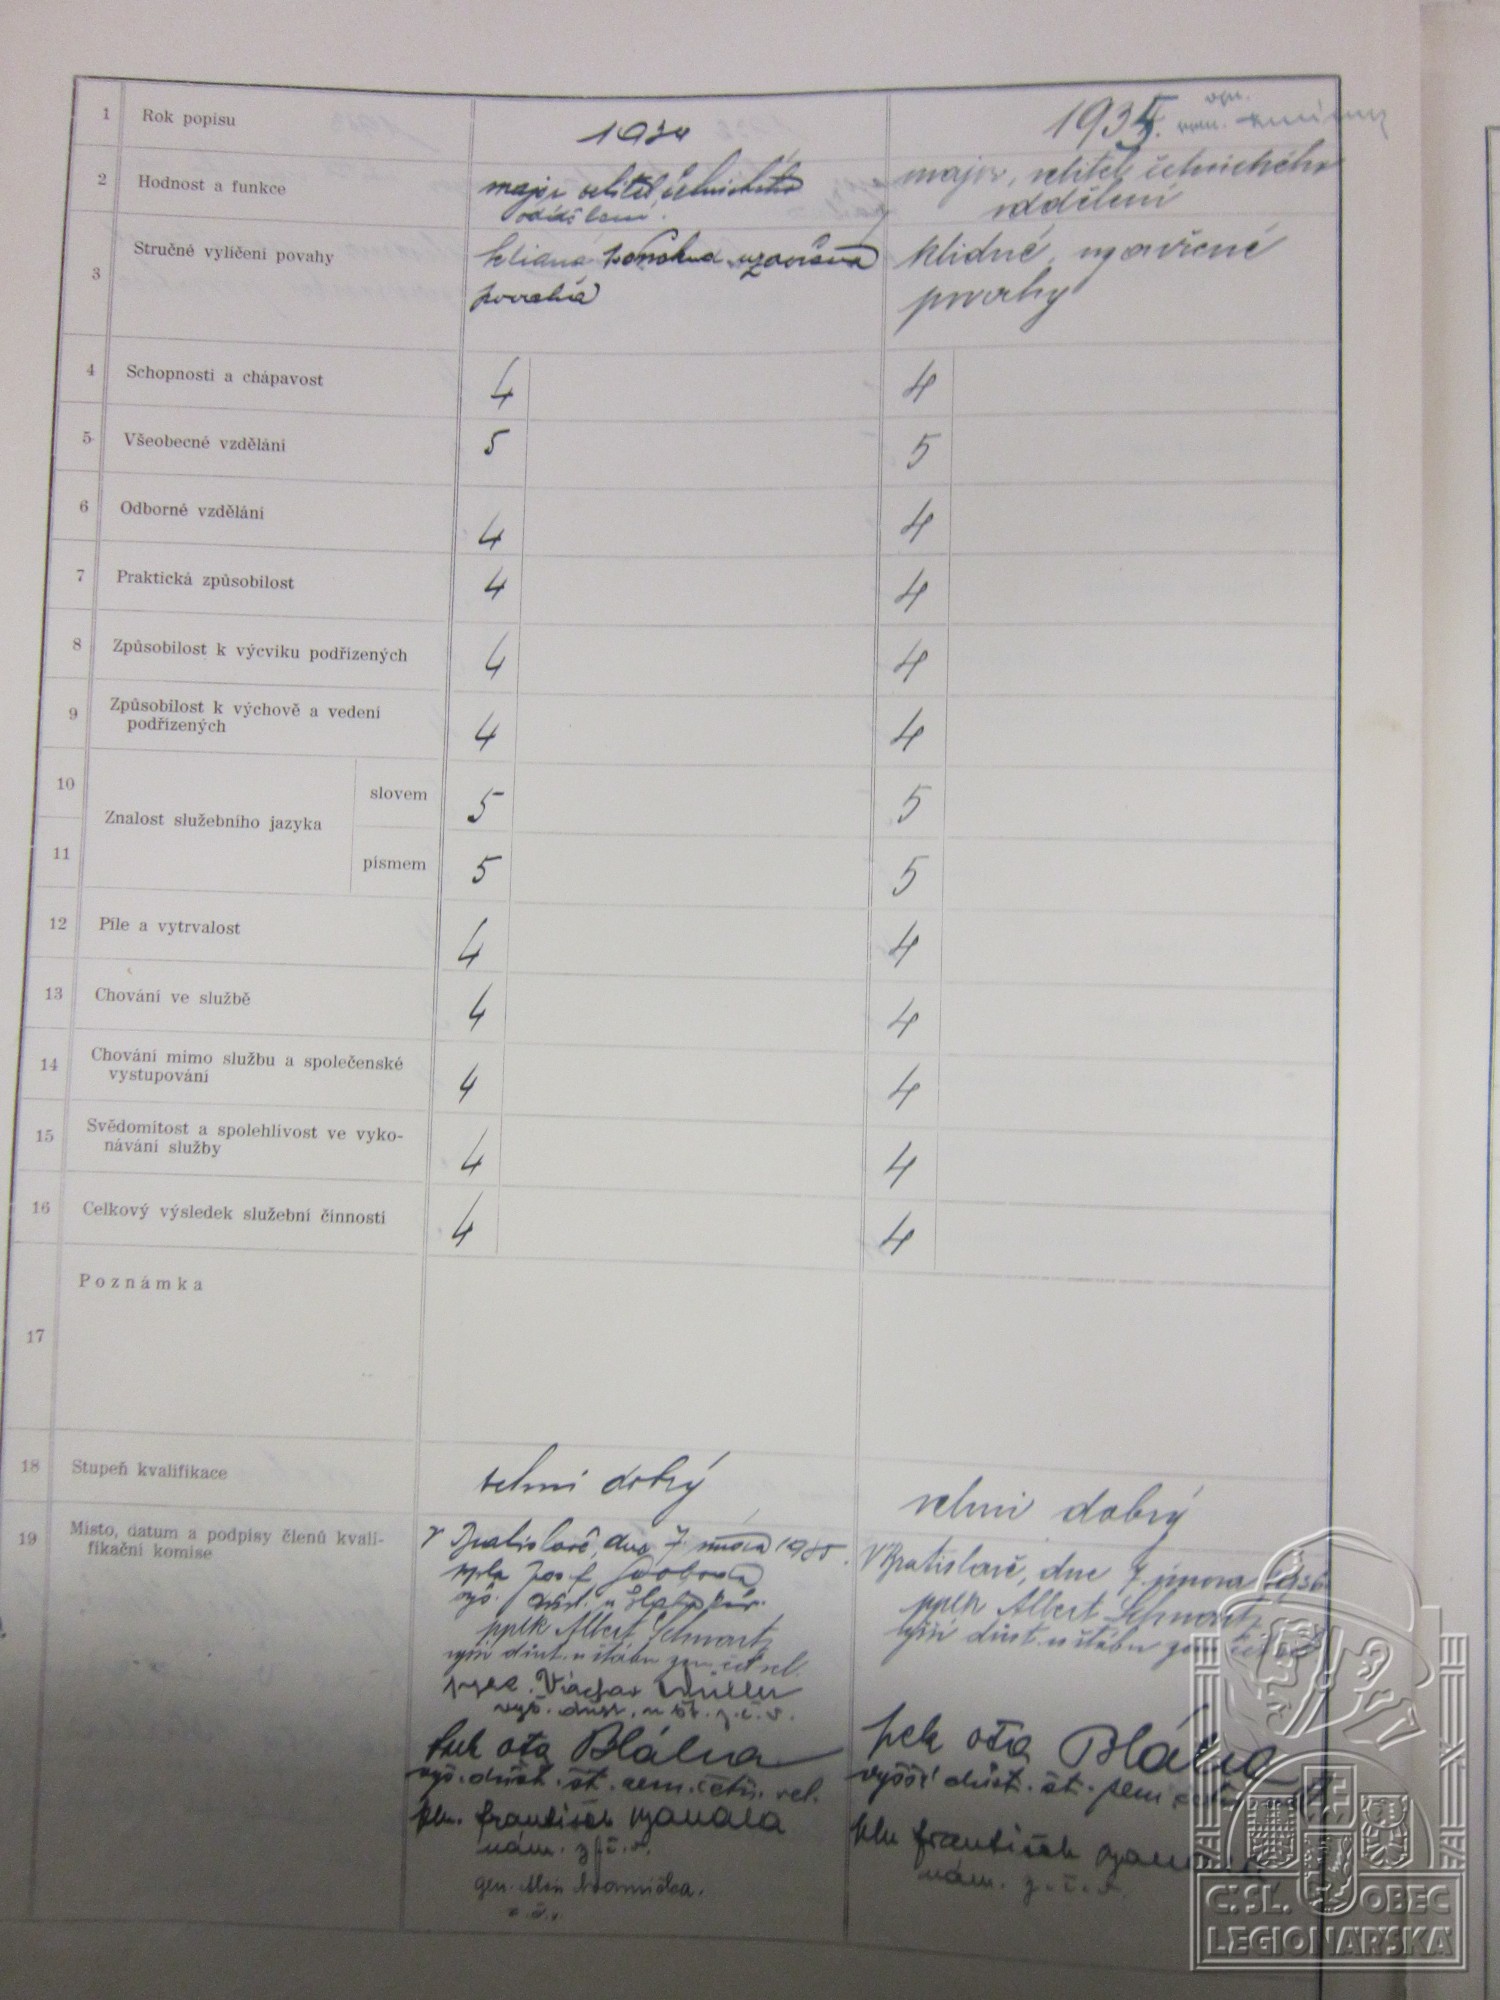 1 Rok popisu 1934 1935.
2 Hodnost a funkce major velitel četnického major, velitel četnického
oddělení. oddělení
3 Stručné vylíčení povahy uzavřená klidné, uzavřené
povaha povahy
4 Schopnosti a chápavost 4 4
5 Všeobecné vzdělání 5 5
6 Odborné vzdělání 4 4
7 Praktická způsobilost 4 4
8 Způsobilost k výcviku podřízených 4 4
9 Způsobilost k výchově a vedení
podřízených 4 4
10 slovem 5 5
Znalost služebního jazyka
11 písmem 5 5
12 Píle a vytrvalost 4 4
13 Chování ve službě 4 4
14 Chování mimo službu a společenské
vystupování 4 4
15 Svědomitost a spolehlivost ve vyko-
návání služby 4 4
16 Celkový výsledek služební činnosti 4 4
17 Poznámka
18 Stupeň kvalifikace velmi dobrý velmi dobrý
19 Místo, datum a podpisy členů kvali-
fikační komise
V Bratislavě, dne 7. února 1935.
Josef Svoboda
pplk Albert Schwartz
vyšší důst. u štábu zem. čet. vel.
Václav Müller
vyš. důst. u št. z. č. v.
plk Ota Bláha
vyš. důst. št. zem. četn. vel.
plk. František Vyhnala
nám. z. č. v.
gen.
z. č. v.
V Bratislavě, dne 7. února 1936
pplk Albert Schwartz
vyšší důst. u štábu zem
plk Ota Bláha
vyšší důst. št. zem
plk František
nám. z. č. v.
Č.SL. OBEC
LEGIONÁŘSKÁ